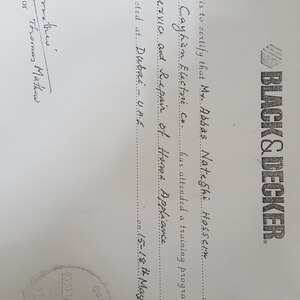 BLACK&DECKER®
is to certify that Mr. Abbas Nateghi Hossein
Cayhan Electric Co. has attended a training progra
ervice and Repair of Home Appliance
at Dubai - U.A.E. on 15-18th May
or Thomas Mathew